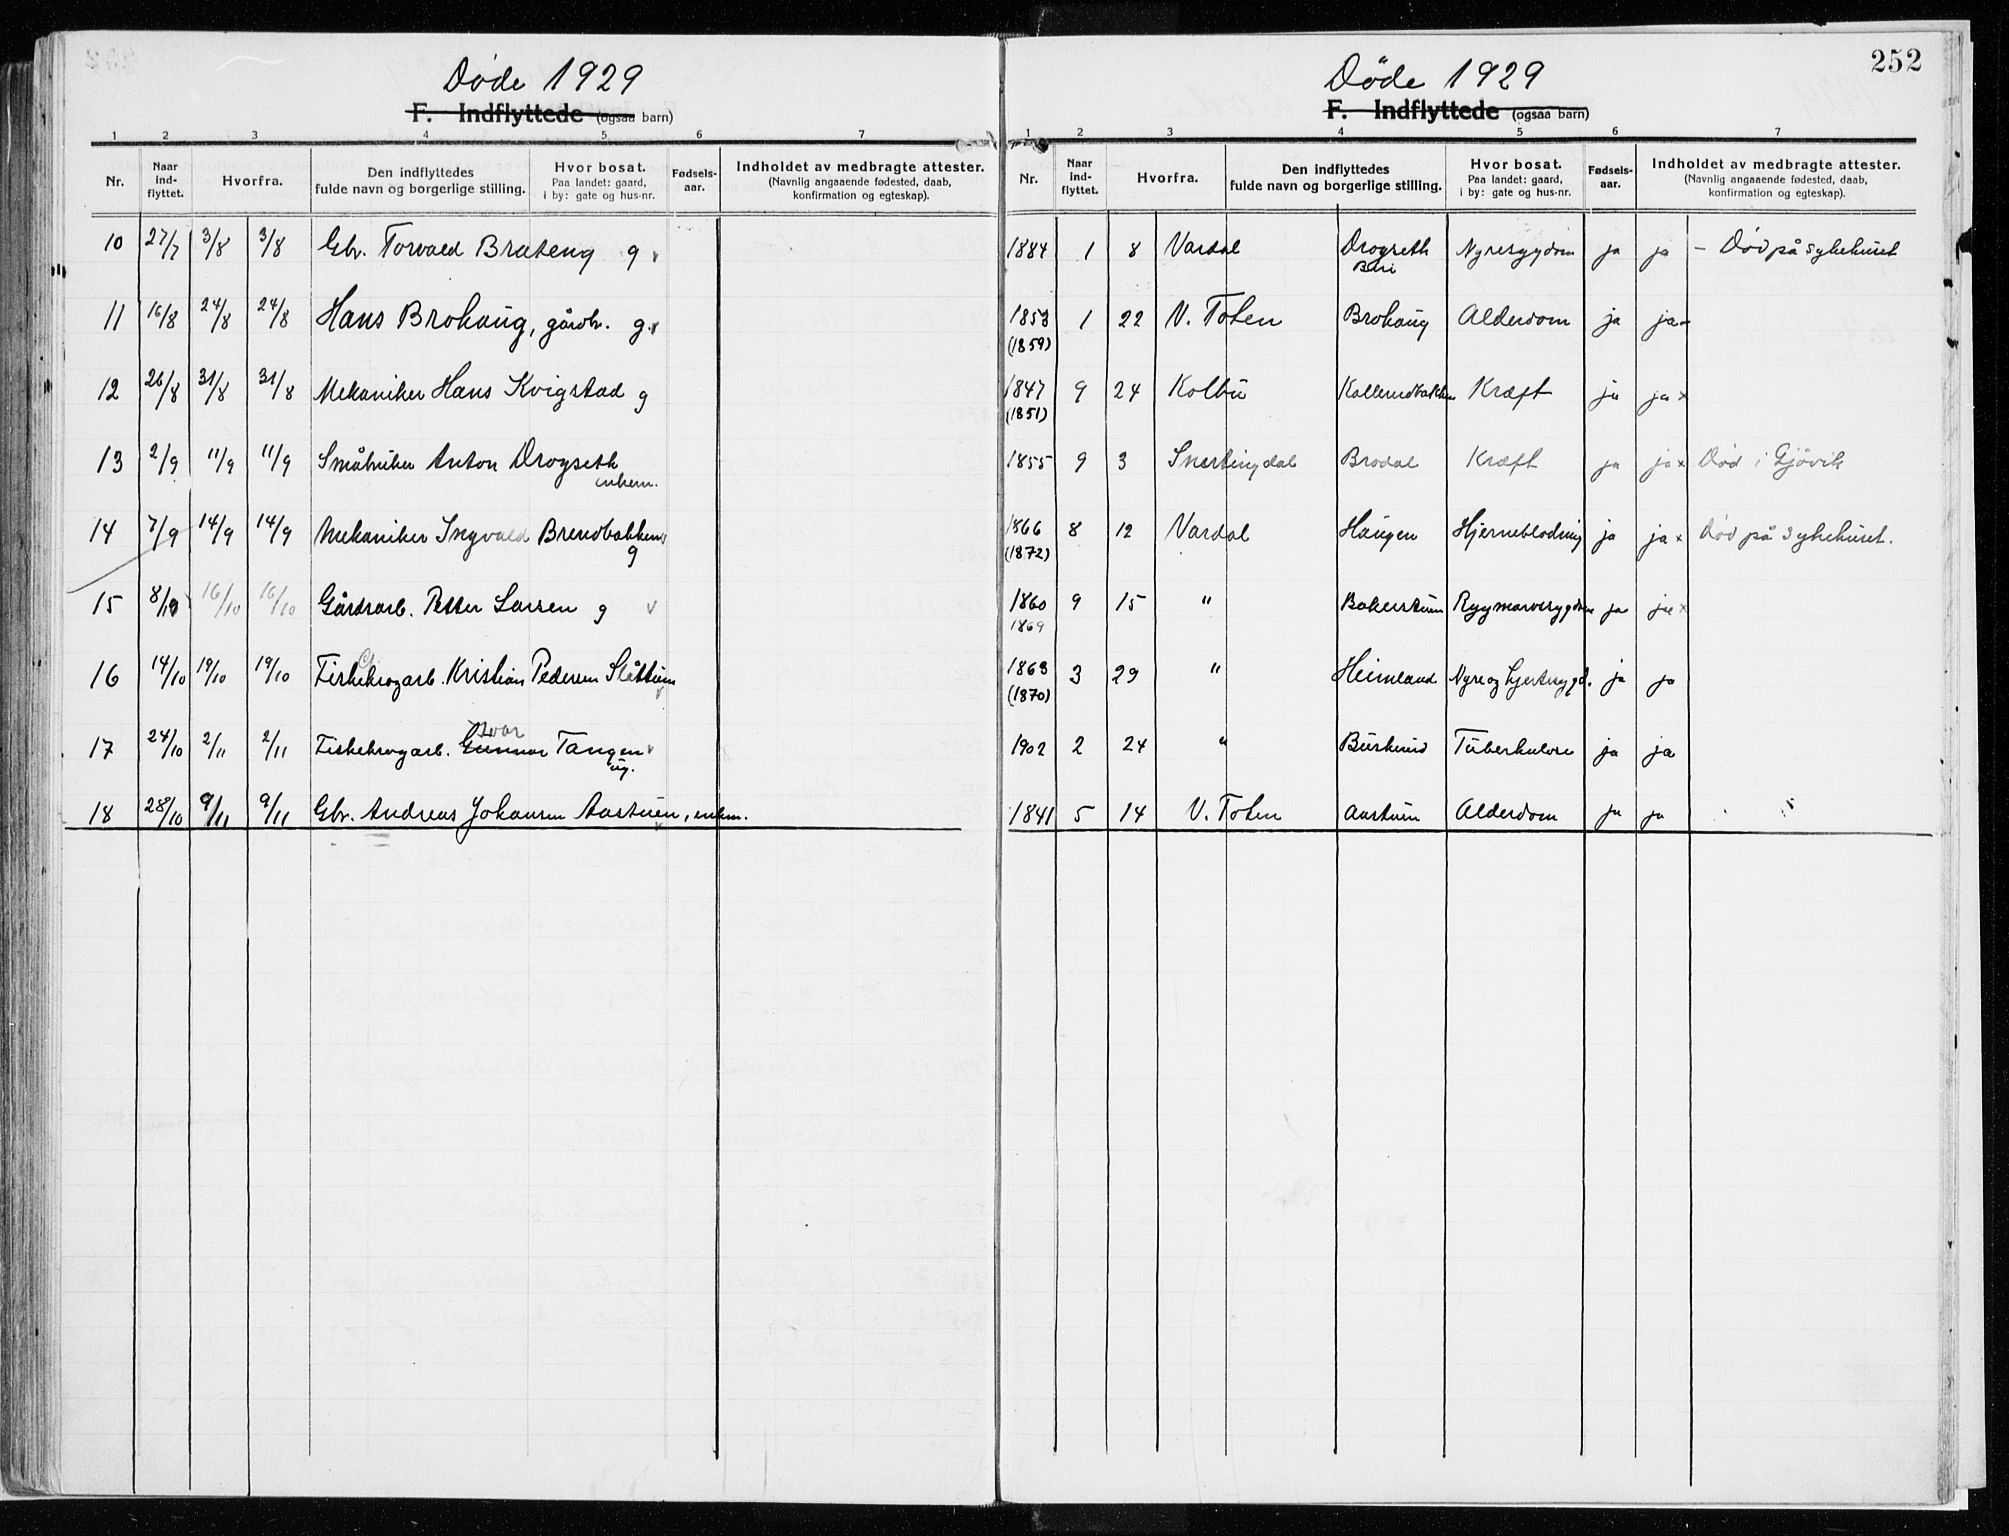 252
Døde 1929
F. Indflyttede (ogsaa barn)
1 2 3 4 5 6 7
Nr. Naar ind-flyttet. Hvorfra. Den indflyttedes fulde navn og borgerlige stilling. Hvor bosat. Paa landet: gaard, i by: gate og hus-nr. Fødsels-aar. Indholdet av medbragte attester. (Navnlig angaaende fødested, daab, konfirmation og egteskap).
10 27/7 3/8 3/8 Gbr. Torvald Brateng g
11 16/8 24/8 24/8 Hans Brohaug, gårdbr. g.
12 26/8 31/8 31/8 Mekaniker Hans Kvigstad g
13 2/9 11/9 11/9 Småbruker Anton Drogseth
enkem.
14 7/9 14/9 14/9 Mekaniker Ingvald Brendbakken
g
15 8/10 16/10 16/10 Gårdsarb. Petter Larsen g v
16 14/10 19/10 19/10 Fiskekrogarb. Kristian Pedersen Slåttum
v
Ivar
17 24/10 2/11 2/11 Fiskekrogarb. Gunnar Tangen v
ug.
18 28/10 9/11 9/11 Gbr. Andreas Johansen Aastuen, enkem.
Døde 1929
F. Indflyttede (ogsaa barn)
1 2 3 4 5 6 7
Nr. Naar ind-flyttet. Hvorfra. Den indflyttedes fulde navn og borgerlige stilling. Hvor bosat. Paa landet: gaard, i by: gate og hus-nr. Fødsels-aar. Indholdet av medbragte attester. (Navnlig angaaende fødested, daab, konfirmation og egteskap).
1884 1 8 Vardal Drogseth Nyresygdom ja ja - Død på sykehuset
Biri
1853 1 22 V. Toten Brohaug Alderdom ja ja -
(1859)
1847 9 24 Kolbu Kræft ja ja x
(1851)
1855 9 3 Snertingdal Brodal Kræft ja ja x Død i Gjøvik
1866 8 12 Vardal Haugen Hjerneblødning ja ja x Død på sykehuset.
(1872)
1860 9 15 " Bakerstuen Rygmarvsygdom ja ja x
1869
1863 3 29 " Heimland Nyre og hjertesygd. ja ja
(1870)
1902 2 24 " Tuberkulose ja ja
1841 5 14 V. Toten Aastuen Alderdom ja ja